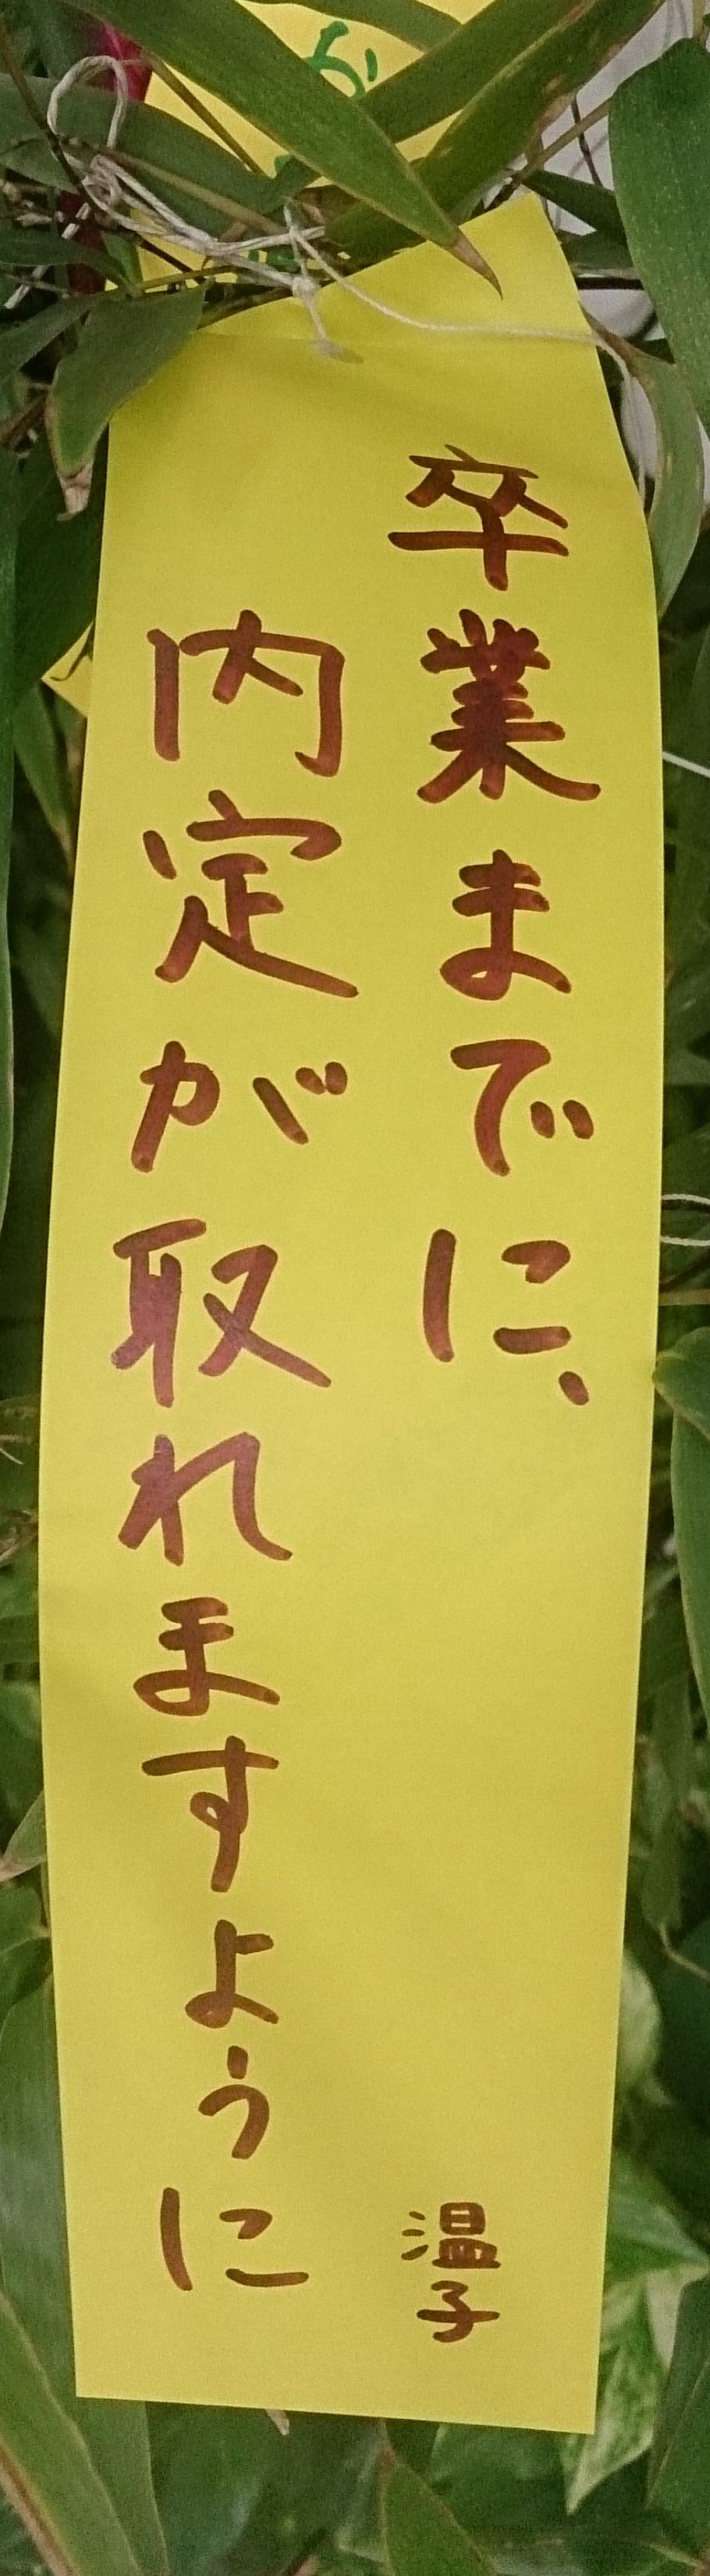 卒業までに、
内定が取れますように
温子
か